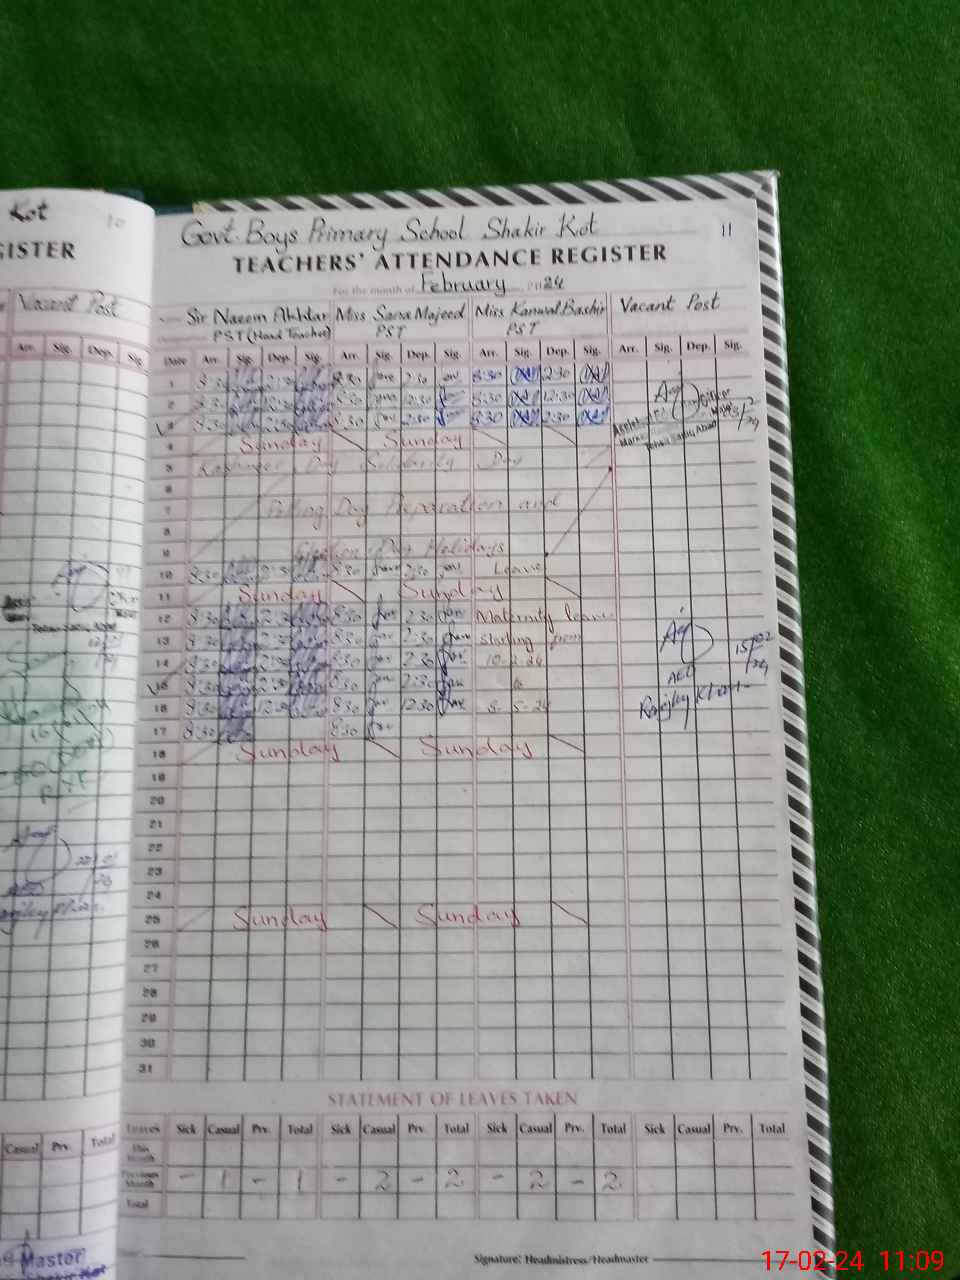 Kot
10
GISTER
Vacant Post
Arr. Sig. Dep. Sig
Govt. Boys Primary School Shakir Kot 11
TEACHERS' ATTENDANCE REGISTER
For the month of February 2024
Sir Naeem Akhtar Miss Sana Majeed Miss Kanwal Bashir Vacant Post
PST (Head Teacher) PST PST
Date Arr. Sig. Dep. Sig. Arr. Sig. Dep. Sig. Arr. Sig. Dep. Sig. Arr. Sig. Dep. Sig.
1 8:30 2:30 8:30 2:30 8:30 2:30
2 8:30 12:30 8:30 12:30 8:30 12:30
3 8:30 2:30 8:30 2:30 8:30 2:30
4 Sunday Sunday
5 Kashmir Day Solidarity Day
6
7 Polling Day Preparation and
8
9 Election Day Holidays
10 8:30 2:30 8:30 2:30 Leave
11 Sunday Sunday
12 8:30 2:30 8:30 2:30 Maternity leave
13 8:30 2:30 8:30 2:30 starting from
14 8:30 2:30 8:30 2:30 10-2-24
15 8:30 2:30 8:30 2:30 to
16 8:30 12:30 8:30 12:30 8-5-24
17 8:30 8:30
18 Sunday Sunday
19
20
21
22
23
24
25 Sunday Sunday
26
27
28
29
30
31
AEO
15/02
STATEMENT OF LEAVES TAKEN
Leaves Sick Casual Prv. Total Sick Casual Prv. Total Sick Casual Prv. Total Sick Casual Prv. Total
This Month
Previous Month - 1 - 1 - 2 - 2 - 2 - 2
Total
Casual Prv. Total
Master
Signature: Headmistress/Headmaster
17-02-24 11:09